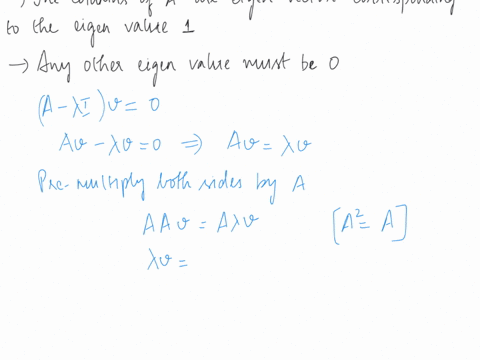 → The columns of A are eigen vectors corresponding
to the eigen value 1
→ Any other eigen value must be 0
(A - λI)v = 0
Av - λv = 0 ⇒ Av = λv
Pre-multiply both sides by A
A A v = A λ v [A² = A]
λv =